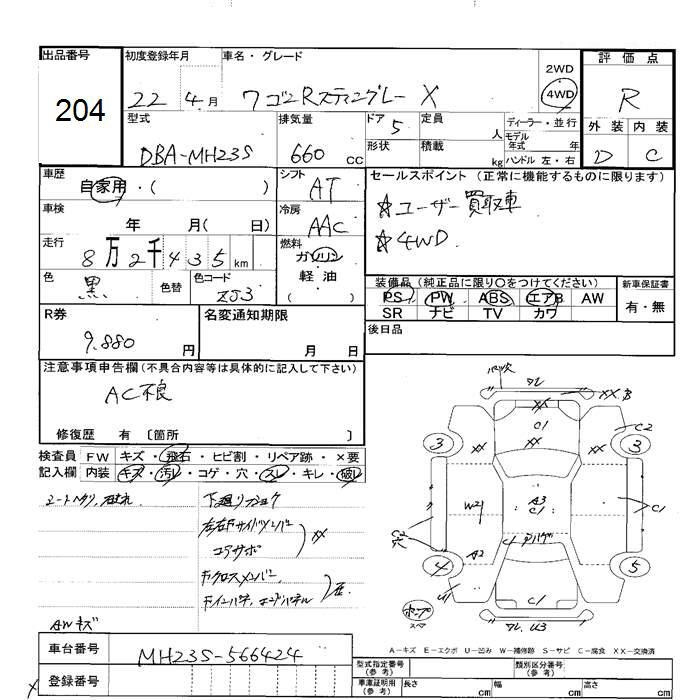 出品番号 初度登録年月 車名・グレード 評価点
204
22年4月 ワゴンRスティングレー X
2WD
4WD
R
型式 排気量 ドア 定員 ディーラー・並行
DBA-MH23S 660cc 5 人 モデル年式 年
形状 積載 kg ハンドル 左・右
外装 内装
D C
車歴 シフト セールスポイント(正常に機能するものに限ります)
自家用・( ) AT ☆ユーザー買取車
車検 冷房
年 月( 日) AAC ☆4WD
走行 燃料
8万2千435km ガソリン
軽油
( )
色 色替 色コード
黒 ZJ3
装備品(純正品に限り○をつけてください) 新車保証書
PS PW ABS エアB AW 有・無
SR ナビ TV カワ
R券 名変通知期限 後日品
9,880円 月 日
注意事項申告欄(不具合内容等は具体的に記入して下さい)
AC不良
修復歴 有 〔箇所 〕
検査員 FW キズ・飛石・ヒビ割・リペア跡・×要
記入欄 内装 キズ・汚レ・コゲ・穴・スレ・キレ・破レ
AWキズ
車台番号 MH23S-566424
登録番号
XX XX B
C1 C2
3 3
XX XX
W2 A3 C1 C1
C2 穴
A2
4 5
U1 C1
U3
A-キズ E-エクボ U-凹み W-補修跡 S-サビ C-腐食 XX-交換済
型式指定番号(参考) 類別区分番号(参考)
車庫証明用(参考) 長さ cm 幅 cm 高さ cm